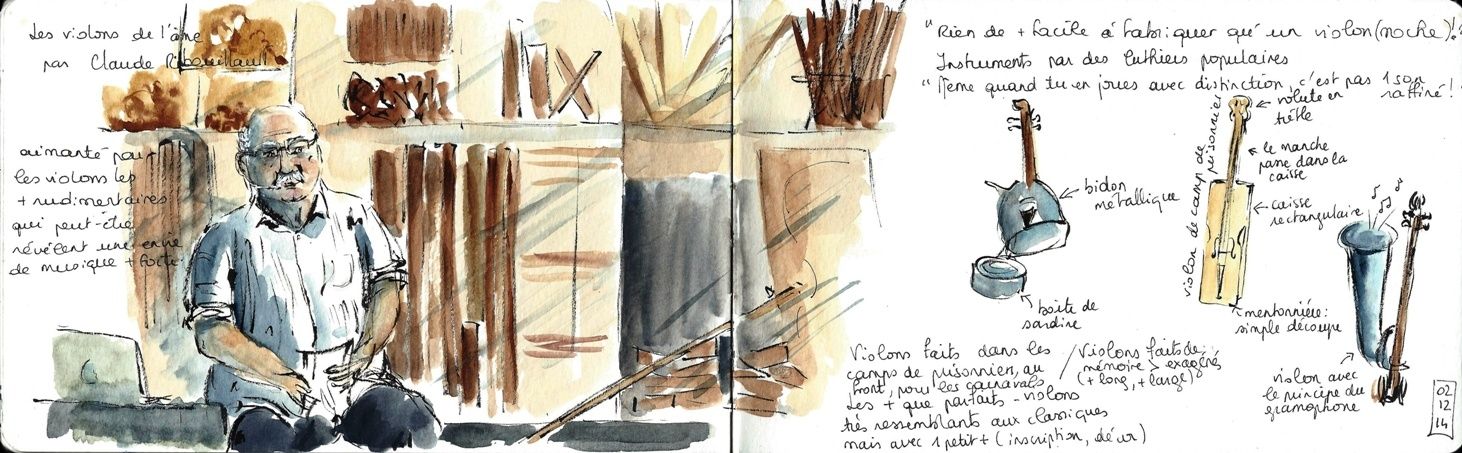 Les violons de l'âme
par Claude Ribouillault
aimanté par
les violons les
+ rudimentaires
qui peut-être
révèlent une envie
de musique + forte
"Rien de + facile à fabriquer qu'un violon (moche)!"
Instruments par des luthiers populaires
"Même quand tu en joues avec distinction, c'est pas 1 son
raffiné!"
bidon
métallique
boîte de
sardine
violon de camp de
prisonnier
volute en
trèfle
le manche
passe dans la
caisse
caisse
rectangulaire
mentonnière:
simple découpe
violon avec
le principe du
gramophone
Violons faits dans les
camps de prisonnier, au
front, pour les carnavals
Des + que parfaits - violons
très ressemblants aux classiques
mais avec 1 petit + (inscription, décor)
/ Violons faits de
mémoire > exagérés
(+ long, + large)
02
12
14